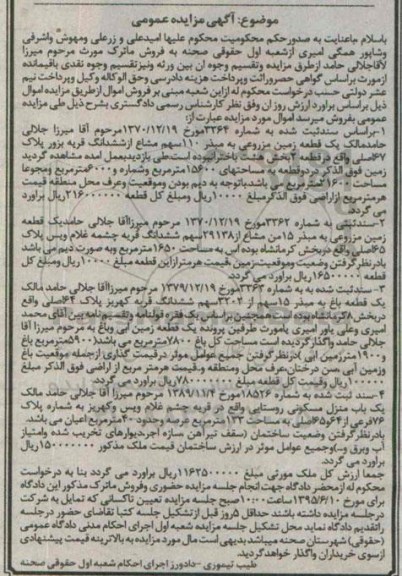 موضوع: آگهی مزایده عمومی
باسلام باعنایت به صدورحکم محکومیت محکوم علیها امیدعلی و زرعلی ومهوش واشرفی
وشاپور همگی امیری ازشعبه اول حقوقی صحنه به فروش ماترک مورث مرحوم میرزا
آقاجلالی حامد ازطریق مزایده وتقسیم وجوه آن بین ورثه ونیزتقسیم وجوه نقدی باقیمانده
ازمورث براساس گواهی حصروراثت وپرداخت هزینه دادرسی وحق الوکاله وکیل وپرداخت نیم
عشر دولتی حسب درخواست محکوم له ازاین شعبه مبنی بر فروش اموال ازطریق مزایده اموال
ذیل براساس برآورد ارزش روز آن وفق نظر کارشناس رسمی دادگستری بشرح ذیل طی مزایده
عمومی بفروش میرسد اموال مورد مزایده عبارت از:
۱-براساس سندثبت شده به شماره ۳۳۶۴مورخ ۱۳۷۰/۱۲/۱۹مرحوم آقا میرزا جلالی
حامدمالک یک قطعه زمین مزروعی به میذر ۱۱۰سهم مشاع ازششدانگ قریه بزور پلاک
۶۷اصلی واقع درقطعه ۲بخش هشت باختران بوده است طی بازدیدبعمل آمده مشاهده گردید
زمین فوق الذکر دردوقطعه به مساحتهای ۱۵۶۰۰مترمربع وشماره و۶۰۰۰مترمربع ومجموعا
مساحت ۲۱۶۰۰مترمربع می باشدباتوجه به دیم بودن وموقعیت وعرف محل منطقه قیمت
هرمترمربع ازاراضی فوق الذکرمبلغ ۱۰۰۰۰ ریال ومبلغ کل قطعه ۲۱۶۰۰۰۰۰۰ریال برآورد
می گردد.
۲-سندثبتی به شماره ۳۳۶۲مورخ ۱۳۷۰/۱۲/۱۹ مرحوم میرزاآقا جلالی حامدیک قطعه
زمین مزروعی به میذر ۱۵من مشاع از۲۹۱۳۸سهم ششدانگ قریه چشمه غلام ویس پلاک
۶۵اصلی واقع دربخش کرمانشاه بوده اس به مساحت ۱۶۵۰۰مترمربع وبه صورت دیم می باشد
بادرنظرگرفتن وضعیت وموقعیت زمین قیمت هرمترازاین قطعه مبلغ ۱۰۰۰۰ ریال ومبلغ کل
قطعه ۱۶۵۰۰۰۰۰۰ریال برآورد می گردد.
۳-سندثبت شده به به شماره ۳۳۶۳مورخ ۱۳۷۹/۱۲/۱۹ مرحوم میرزاآقا جلالی حامد مالک
یک قطعه باغ به میذر ۱۵سهم از ۳۲۰۴سهم ششدانگ قریه کهریز پلاک ۶۴اصلی واقع
دربخش ۸کرمانشاه بوده است همچنین براساس یک فقره قولنامه وتقسیم نامه بین آقای محمد
امیری وعلی یاور امیری بامورث طرفین پرونده یک قطعه زمین آبی وباغ به مرحوم میرزا آقا
جلالی حامد واگذارگردیده است مساحت کل باغ ۷۸۰۰مترمربع می باشد(۵۹۰۰مترمربع باغ
و۱۹۰۰مترزمین آبی )درنظرگرفتن جمیع عوامل موثر درقیمت گذاری ازجمله موقعیت باغ
وزمین آبی ،سن درختان،عرف محل ومنطقه و.قیمت هرمتر مربع از اراضی فوق الذکر مبلغ
۱۰۰۰۰۰ ریال وقیمت کل قطعه مبلغ ۷۸۰۰۰۰۰۰۰ ریال برآورد می گردد
۴-سند ثبت شده به شماره ۱۸۵۲۶مورخ ۱۳۸۹/۱۱/۴ مرحوم میرزا آقا جلالی حامد مالک
یک باب منزل مسکونی روستایی واقع در قریه چشم غلام ویس وکهریز به شماره پلاک
۷۶فرعی از۶۴و۶۵اصلی به مساحت ۱۳۳مترمربع عرصه وحدود ۴۰مترمربع اعیان می باشد.
بادرنظرگرفتن وضعیت ساختمان (سقف تیرآهن سازه آجردیوارهای تخریب شده وامتیاز
آب وبرق و..)وجمیع عوامل موثر در ارزش ساختمان قیمت ملک مذکور ۱۵۰۰۰۰۰۰۰ریال
برآورد می گردد.
جمعا ارزش کل ملک مورثی مبلغ ۱۱۶۲۵۰۰۰۰۰ریال برآورد می گردد بنا به درخواست
محکوم له ازمحضر دادگاه جهت انجام جلسه مزایده حضوری وفروش ماترک مذکور این دادگاه
برای مورخ ۱۳۹۵/۶/۱۰ساعت۱۰:۰۰صبح جلسه مزایده تعیین تاکسانی که تمایل به شرکت
درجلسه مزایده داشته باشند حداقل ۵روز قبل ازتشکیل جلسه کتبا تقاضای حضور درجلسه
راتقدیم دادگاه نماید محل تشکیل جلسه مزایده شعبه اول اجرای احکام مدنی دادگاه عمومی
(حقوقی) شهرستان صحنه میباشدبدیهی است مال مورد مزایده به بالاترینه قیمت پیشنهادی
ازسوی خریداران واگذار خواهدگردید.
طیب تیموری -دادورز اجرای احکام شعبه اول حقوقی صحنه